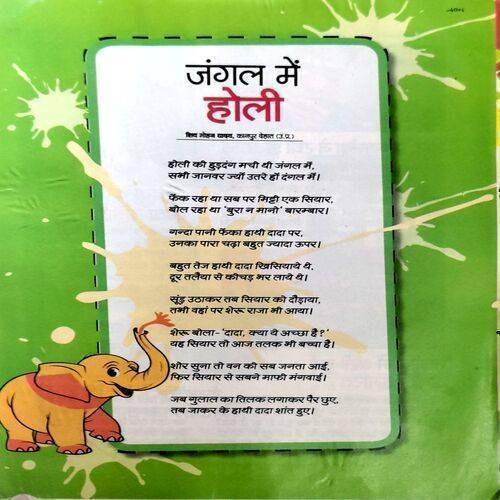 जंगल में
होली
शिव मोहन यादव, कानपुर देहात (उ.प्र.)
होली की हुड़दंग मची थी जंगल में,
सभी जानवर ज्यों उतरे हों दंगल में।
फेंक रहा था सब पर मिट्टी एक सियार,
बोल रहा था 'बुरा न मानो' बारम्बार।
गन्दा पानी फेंका हाथी दादा पर,
उनका पारा चढ़ा बहुत ज्यादा ऊपर।
बहुत तेज हाथी दादा खिसियाये थे,
दूर तलैया से कीचड़ भर लाये थे।
सूंड़ उठाकर तब सियार को दौड़ाया,
तभी वहां पर शेरू राजा भी आया।
शेरू बोला- 'दादा, क्या ये अच्छा है?'
यह सियार तो आज तलक भी बच्चा है।
शोर सुना तो वन की सब जनता आई,
फिर सियार से सबने माफी मंगवाई।
जब गुलाल का तिलक लगाकर पैर छुए,
तब जाकर के हाथी दादा शांत हुए।